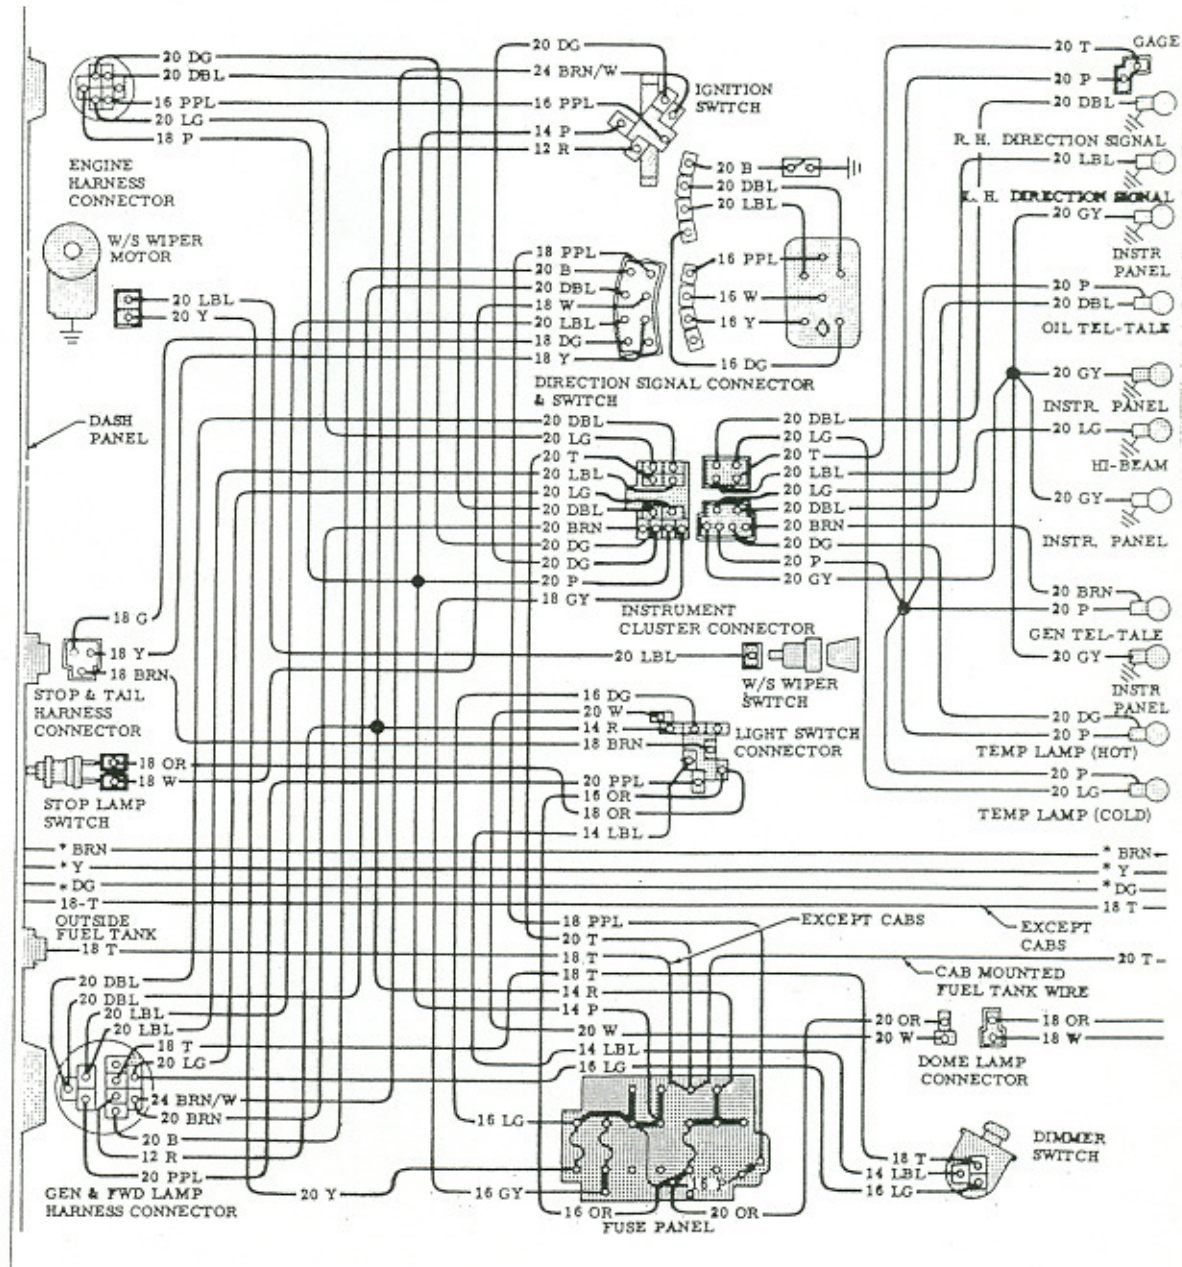 20 DG
20 DBL
16 PPL
20 LG
18 P
ENGINE
HARNESS
CONNECTOR
W/S WIPER
MOTOR
20 LBL
20 Y
DASH
PANEL
18 G
18 Y
18 BRN
STOP & TAIL
HARNESS
CONNECTOR
18 OR
18 W
STOP LAMP
SWITCH
* BRN
* Y
* DG
18-T
OUTSIDE
FUEL TANK
18 T
20 DBL
20 DBL
20 LBL
20 LBL
18 T
20 LG
24 BRN/W
20 BRN
20 B
12 R
20 PPL
GEN & FWD LAMP
HARNESS CONNECTOR
20 DG
24 BRN/W
16 PPL
14 P
12 R
IGNITION
SWITCH
20 B
20 DBL
20 LBL
16 PPL
16 W
16 Y
16 DG
18 PPL
20 B
20 DBL
18 W
20 LBL
18 DG
18 Y
DIRECTION SIGNAL CONNECTOR
& SWITCH
20 DBL
20 LG
20 T
20 LBL
20 LG
20 DBL
20 BRN
20 DG
20 DG
20 P
18 GY
20 DBL
20 LG
20 T
20 LBL
20 LG
20 DBL
20 BRN
20 DG
20 P
20 GY
INSTRUMENT
CLUSTER CONNECTOR
20 LBL
W/S WIPER
SWITCH
16 DG
20 W
14 R
18 BRN
LIGHT SWITCH
CONNECTOR
20 PPL
16 OR
18 OR
14 LBL
18 PPL
20 T
18 T
18 T
14 R
14 P
20 W
14 LBL
16 LG
EXCEPT CABS
16 LG
20 Y
16 GY
16 OR
20 OR
FUSE PANEL
20 T
GAGE
20 P
20 DBL
R. H. DIRECTION SIGNAL
20 LBL
L. H. DIRECTION SIGNAL
20 GY
INSTR
PANEL
20 P
20 DBL
OIL TEL-TALE
20 GY
INSTR. PANEL
20 LG
HI-BEAM
20 GY
INSTR. PANEL
20 BRN
20 P
GEN TEL-TALE
20 GY
INSTR
PANEL
20 DG
20 P
TEMP LAMP (HOT)
20 P
20 LG
TEMP LAMP (COLD)
* BRN
* Y
* DG
18 T
EXCEPT
CABS
20 T
CAB MOUNTED
FUEL TANK WIRE
20 OR
20 W
18 OR
18 W
DOME LAMP
CONNECTOR
18 T
14 LBL
16 LG
DIMMER
SWITCH